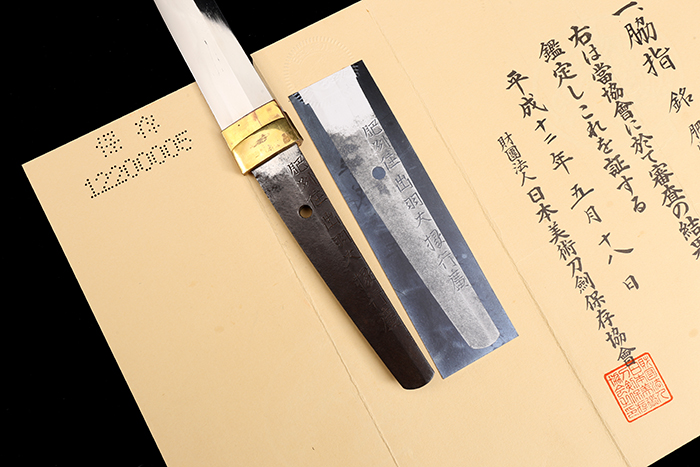 一、脇指 銘 肥
右は當協會に於て審査の結果
鑑定しこれを証する
平成十二年五月十八日
財團法人日本美術刀劍保存協會
肥州住出羽大掾行廣
肥州住出羽大
1220005